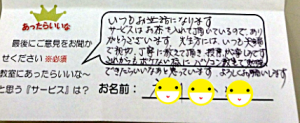 あったらいいな
最後にご意見をお聞か
せください ※必須
教室にあったらいいな～
と思う『サービス』は？
いつもお世話になります
サービスはお茶も入れて頂いているので、あり
がとうございます。先生方には、いつも笑顔
で親切、丁寧に教えて頂き
これからもボケない様に パソコン教室で勉強
できたらいいなあと思っています。よろしくお願いします
お名前：